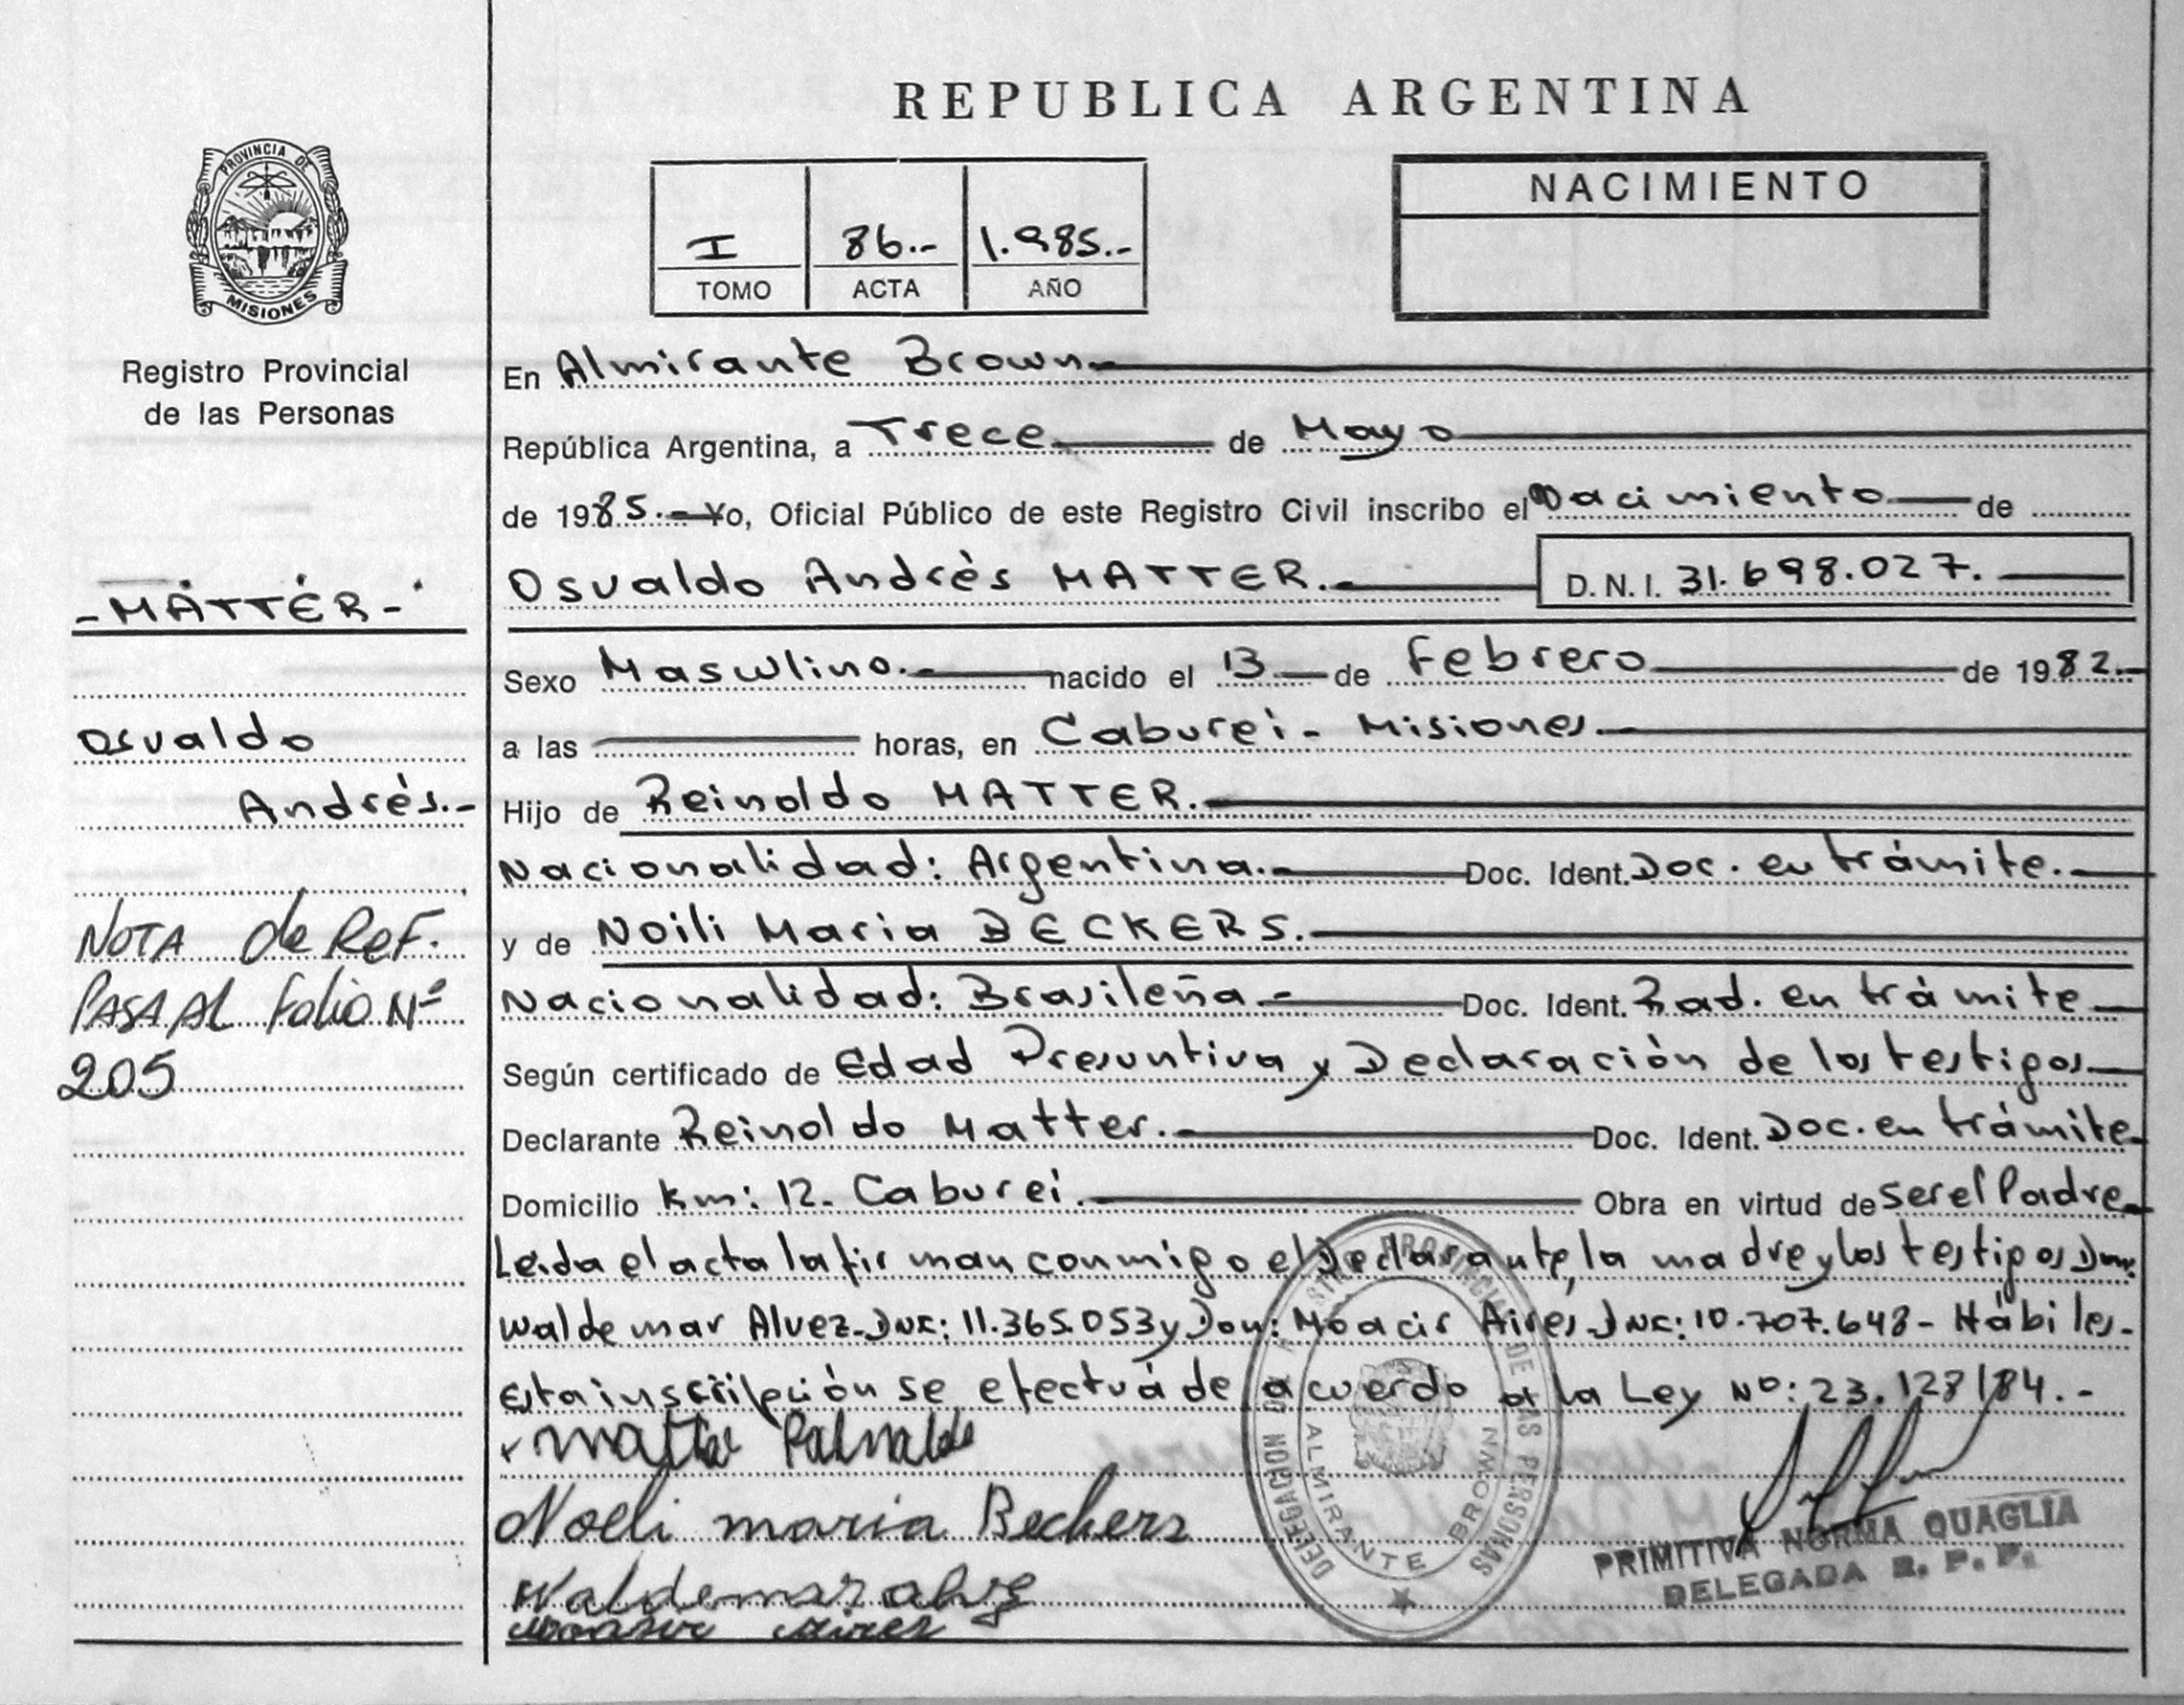 REPUBLICA ARGENTINA
PROVINCIA DE
MISIONES
Registro Provincial
de las Personas
I 86.- 1.985.-
TOMO ACTA AÑO
NACIMIENTO
En Almirante Brown.-
República Argentina, a Trece de Mayo
de 1985.- Yo, Oficial Público de este Registro Civil inscribo el Nacimiento de
Osvaldo Andrès MATTER.- D. N. I. 31.698.027.
- MATTER -
Sexo Masculino.- nacido el 13 de Febrero de 1982.-
Osvaldo
a las horas, en Caburei - Misiones.-
Andrés.-
Hijo de Reinoldo MATTER.-
Nacionalidad: Argentina.- Doc. Ident. Doc. en trámite.-
NOTA de Ref.
y de Noili Maria BECKERS.-
PASA AL Folio Nº
Nacionalidad: Brasileña.- Doc. Ident. Rad. en trámite
205
Según certificado de Edad Presuntiva y Declaración de los testigos
Declarante Reinoldo Matter.- Doc. Ident. Doc. en trámite
Domicilio Km: 12. Caburei.- Obra en virtud de ser el Padre
Leida el acta la firman conmigo el Declarante, la madre y los testigos Don:
Waldemar Alvez - DNI: 11.365.053 y Don: Moacir Aires - DNI: 10.707.648 - Hábiles.-
Esta inscripción se efectuá de acuerdo a la Ley Nº: 23.128/84.-
Noeli maria Beckers
DELEGACION
PROVINCIAL DE LAS PERSONAS
ALMIRANTE BROWN
PRIMITIVA NORMA QUAGLIA
DELEGADA R. P. P.